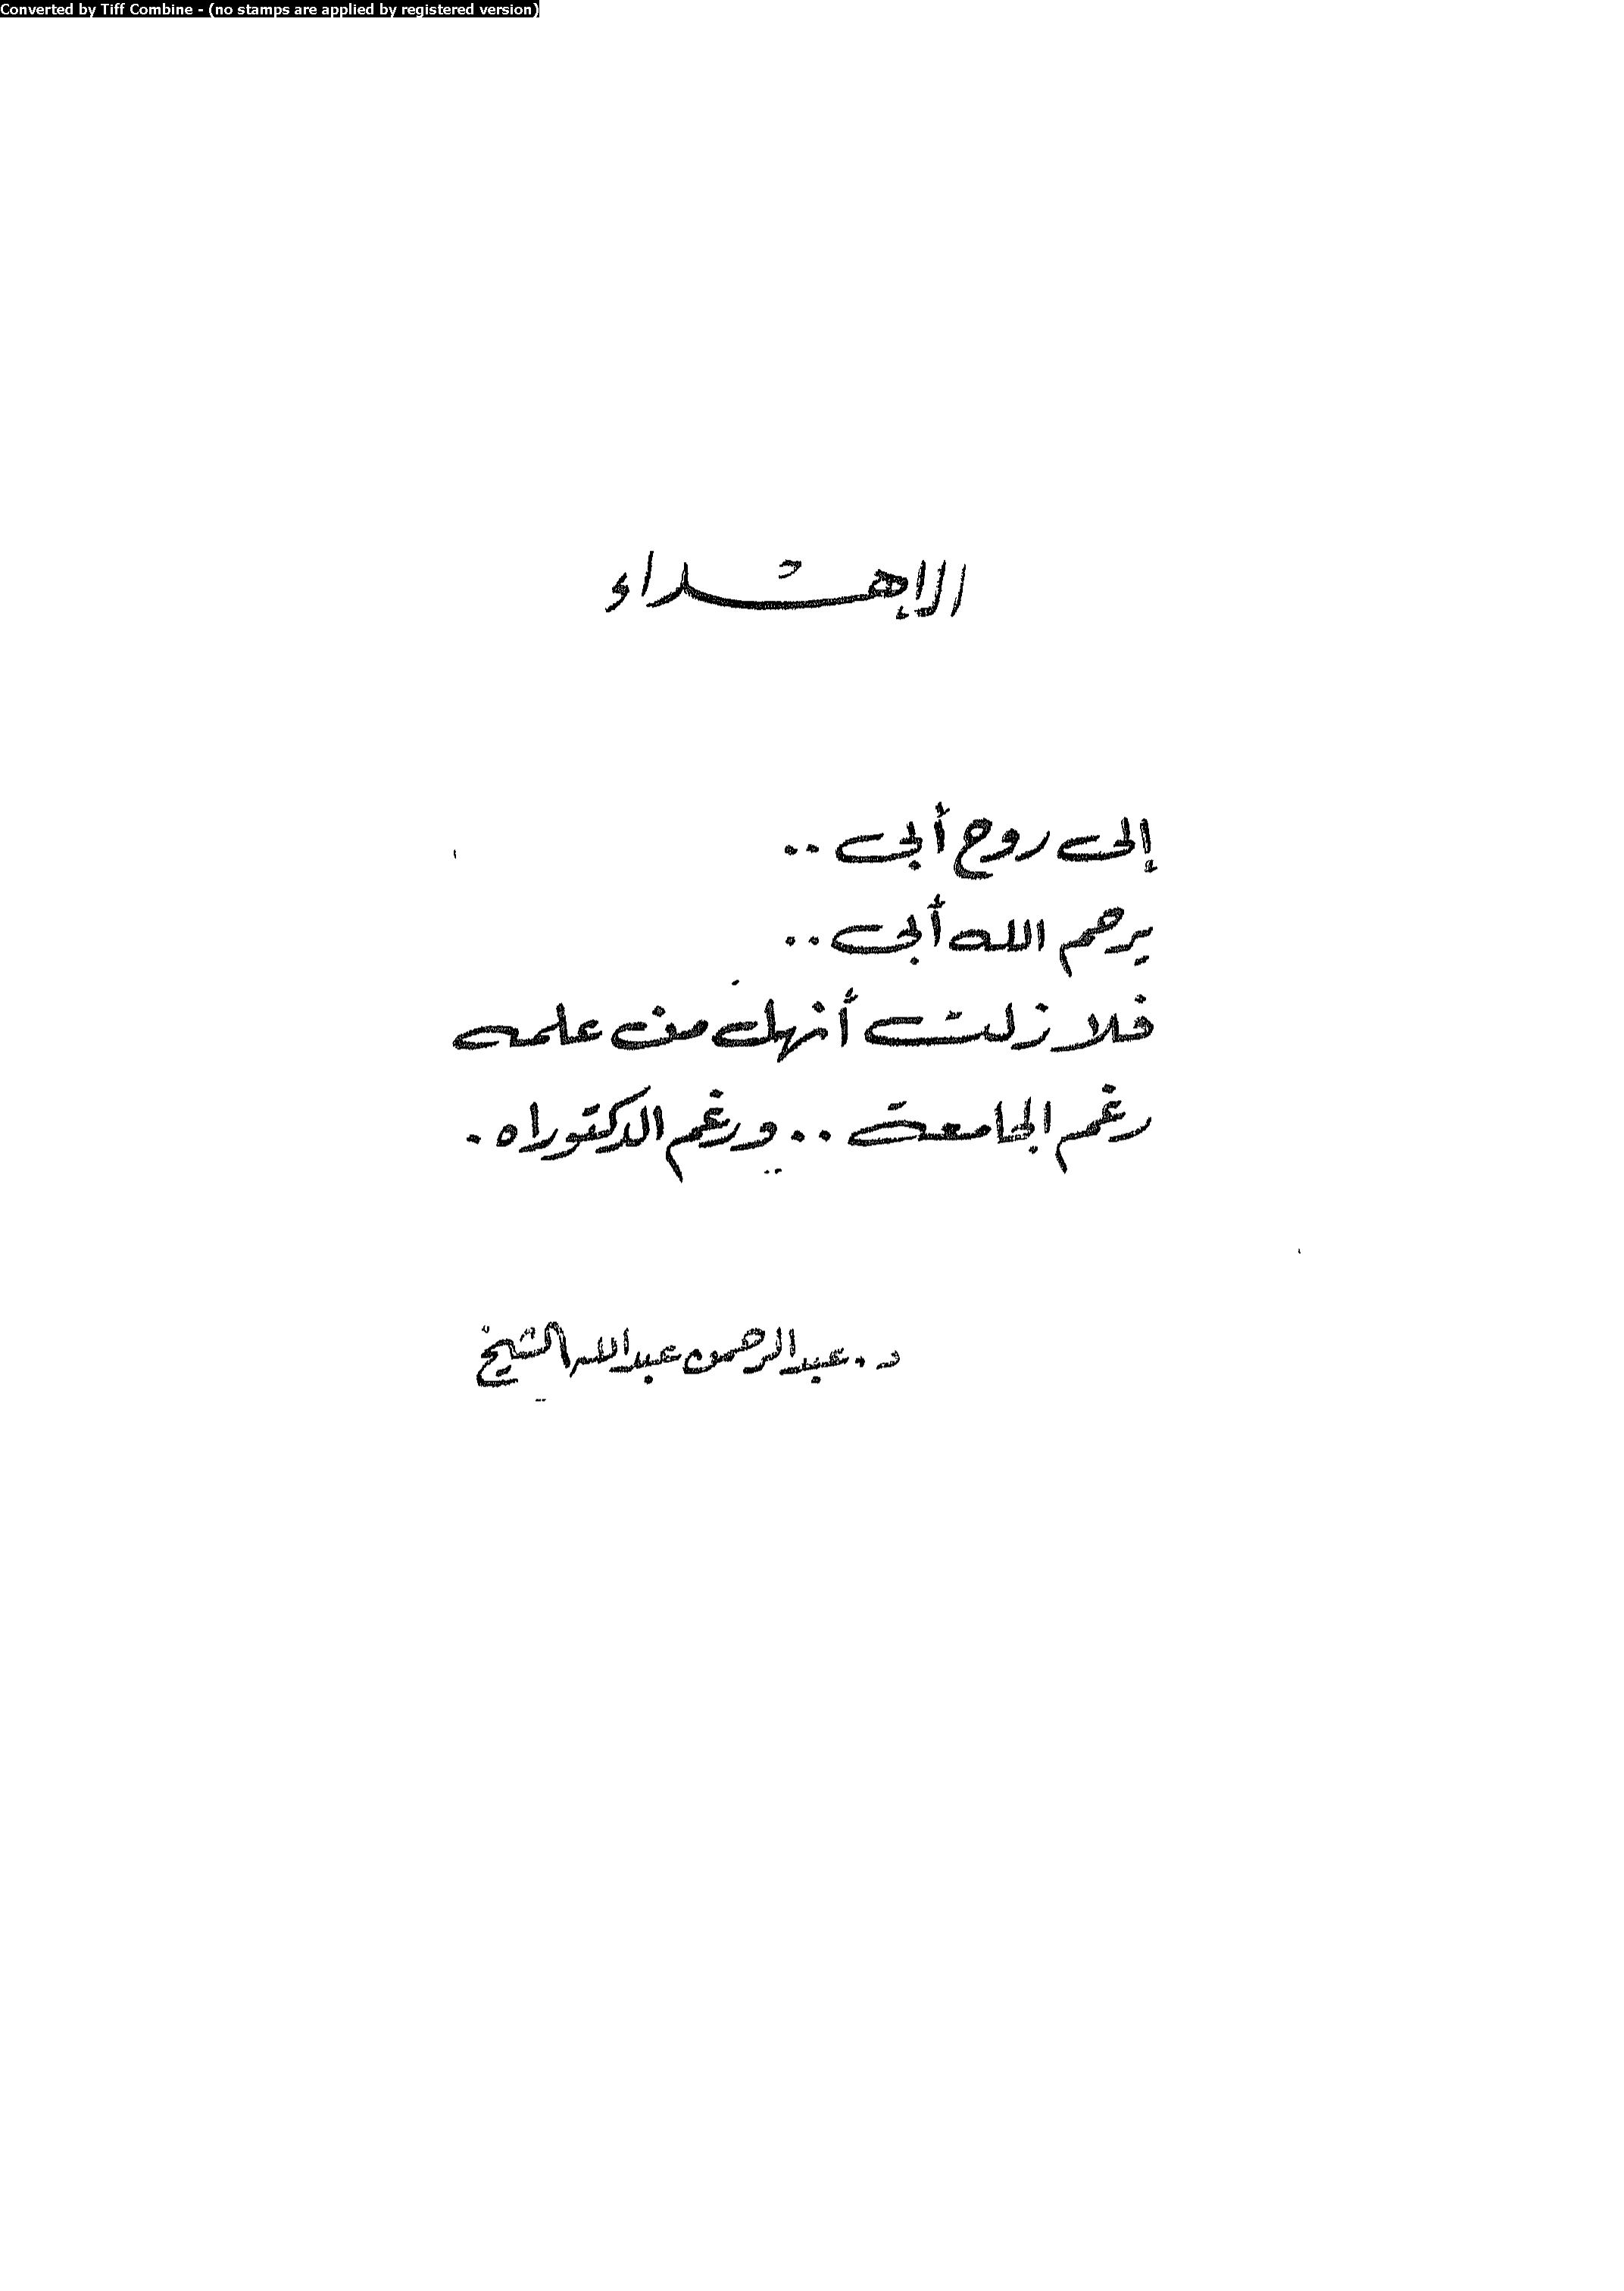 Converted by Tiff Combine - (no stamps are applied by registered version)
الإهداء
إلى روح أبى ..
يرحم الله أبى ..
فلا زلت أنهل من علمه
رغم الجامعة .. ورغم الدكتوراه .
د . عبد الرحمن عبد الله الشيخ